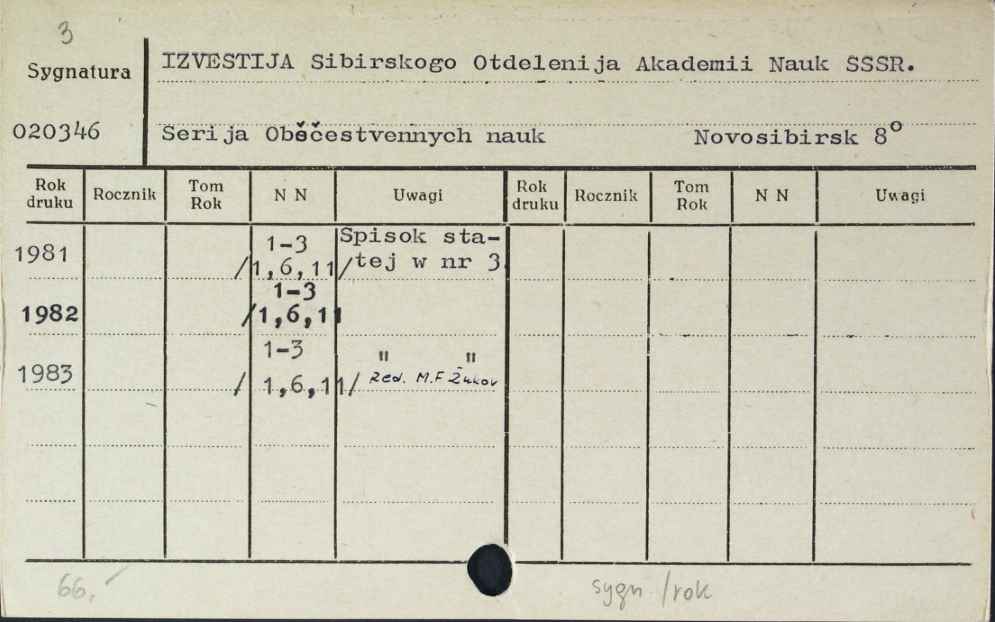 3
Sygnatura
IZVESTIJA Sibirskogo Otdelenija Akademii Nauk SSSR.
020346
Serija Obščestvennych nauk Novosibirsk 8°
Rok druku Rocznik Tom Rok N N Uwagi Rok druku Rocznik Tom Rok N N Uwagi
1981 1-3 Spisok sta-
/1,6,11/ tej w nr 3.
1982 1-3
/1,6,11
1983 1-3 " "
/ 1,6,11/ Red. M.F Žukov
66,
sygn /rok